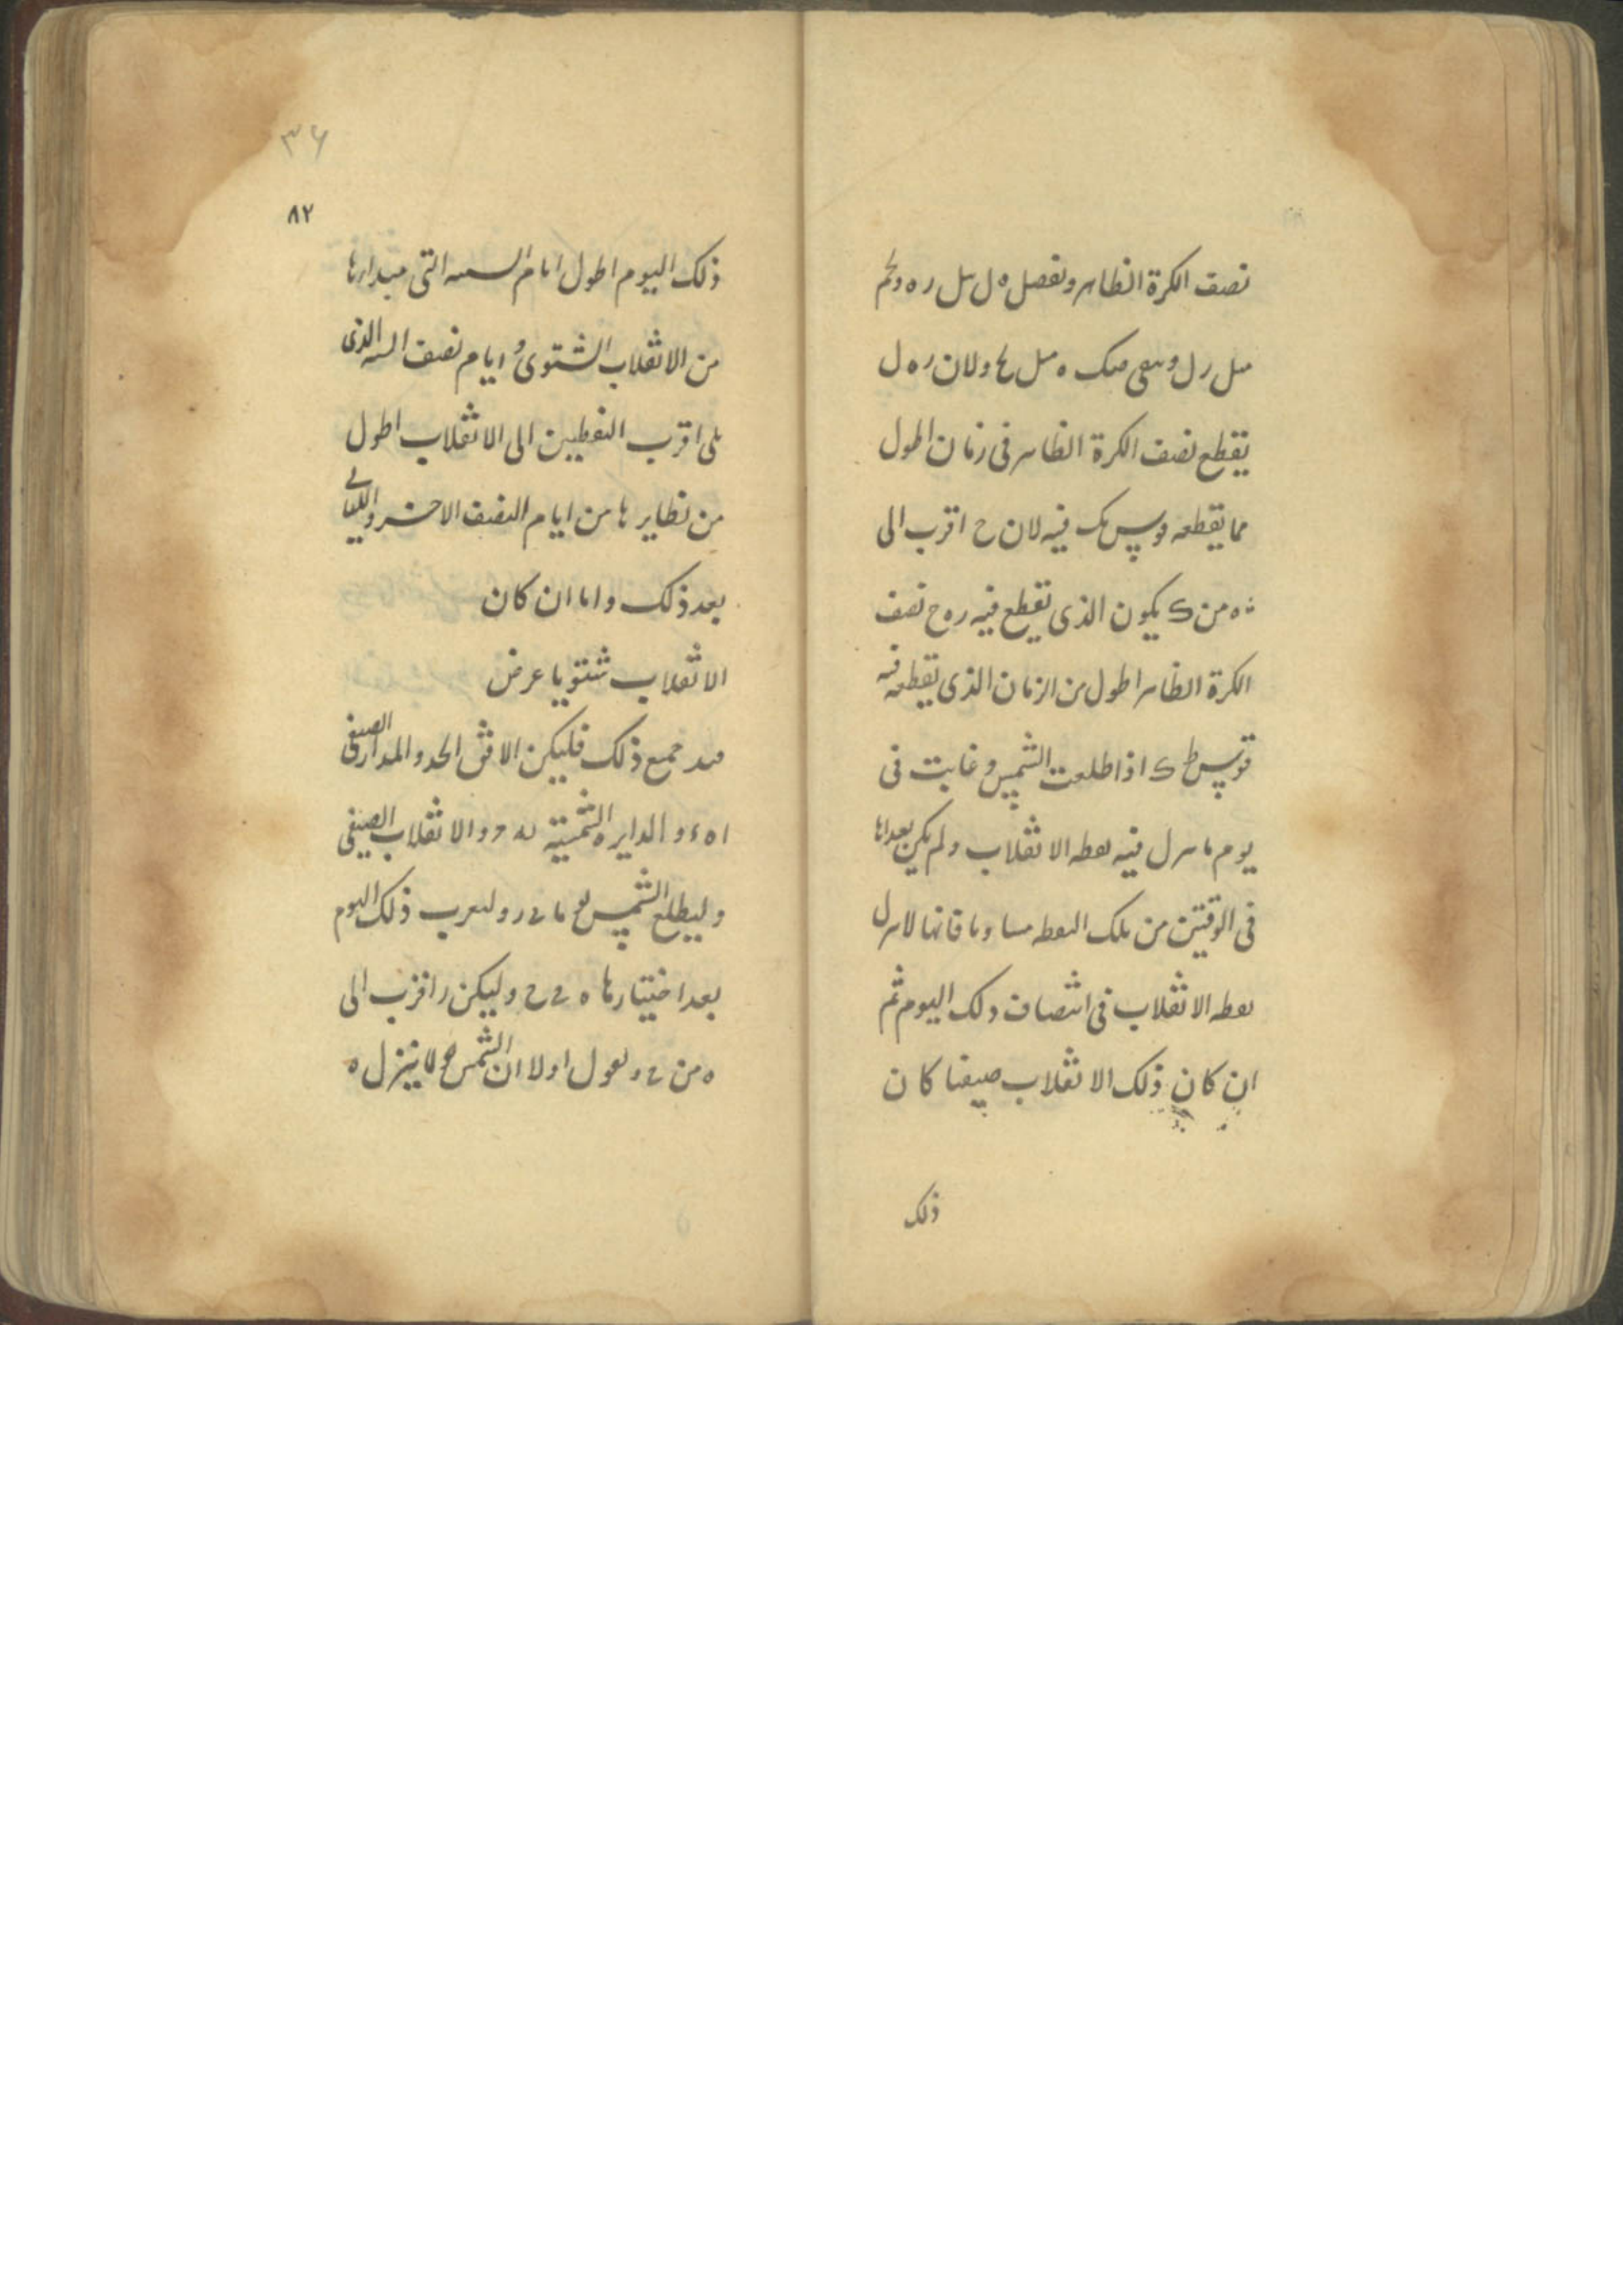 نصف الكرة الظاهر ونفصل ه ل مثل ر ه ولحم
مثل ر ل وسقى مك ه مثل ولان ر ه ل
يقطع نصف الكرة الظاهر فى زمان اطول
مما يقطعه قوس مك فيه لان ح اقرب الى
ه من ك يكون الذى تقطع فيه ر ه ح نصف
الكرة الظاهر اطول من الزمان الذى تقطعه فيه
قوس ط ك اذا طلعت الشمس وغابت فى
يوم ما سرل فيه نقطه الانقلاب ولم يكن بعداها
فى الوقتين من تلك النقطه مساويا فانها لا سرل
نقطه الانقلاب فى انتصاف ذلك اليوم ثم
ان كان ذلك الانقلاب صيفيا كان
ذلك
٣۶
٨٢
ذلك اليوم اطول ايام السنه التى مبداءها
من الانقلاب الشتوى و ايام نصف السنه الذى
يلى اقرب النقطتين الى الانقلاب اطول
من نظايرها من ايام النصف الاخر والليالى
بعد ذلك واما ان كان
الانقلاب شتويا عرض
ضد جميع ذلك فليكن الافق ا ب ح د والمدار الصيفى
ا ه ء و الدايره الشمسية والانقلاب الصيفى
وليطلع الشمس يوما ولتغرب ذلك اليوم
بعد اختيارها ه وليكن ر اقرب الى
ه من ونقول اولا ان الشمس لا ينزل ه